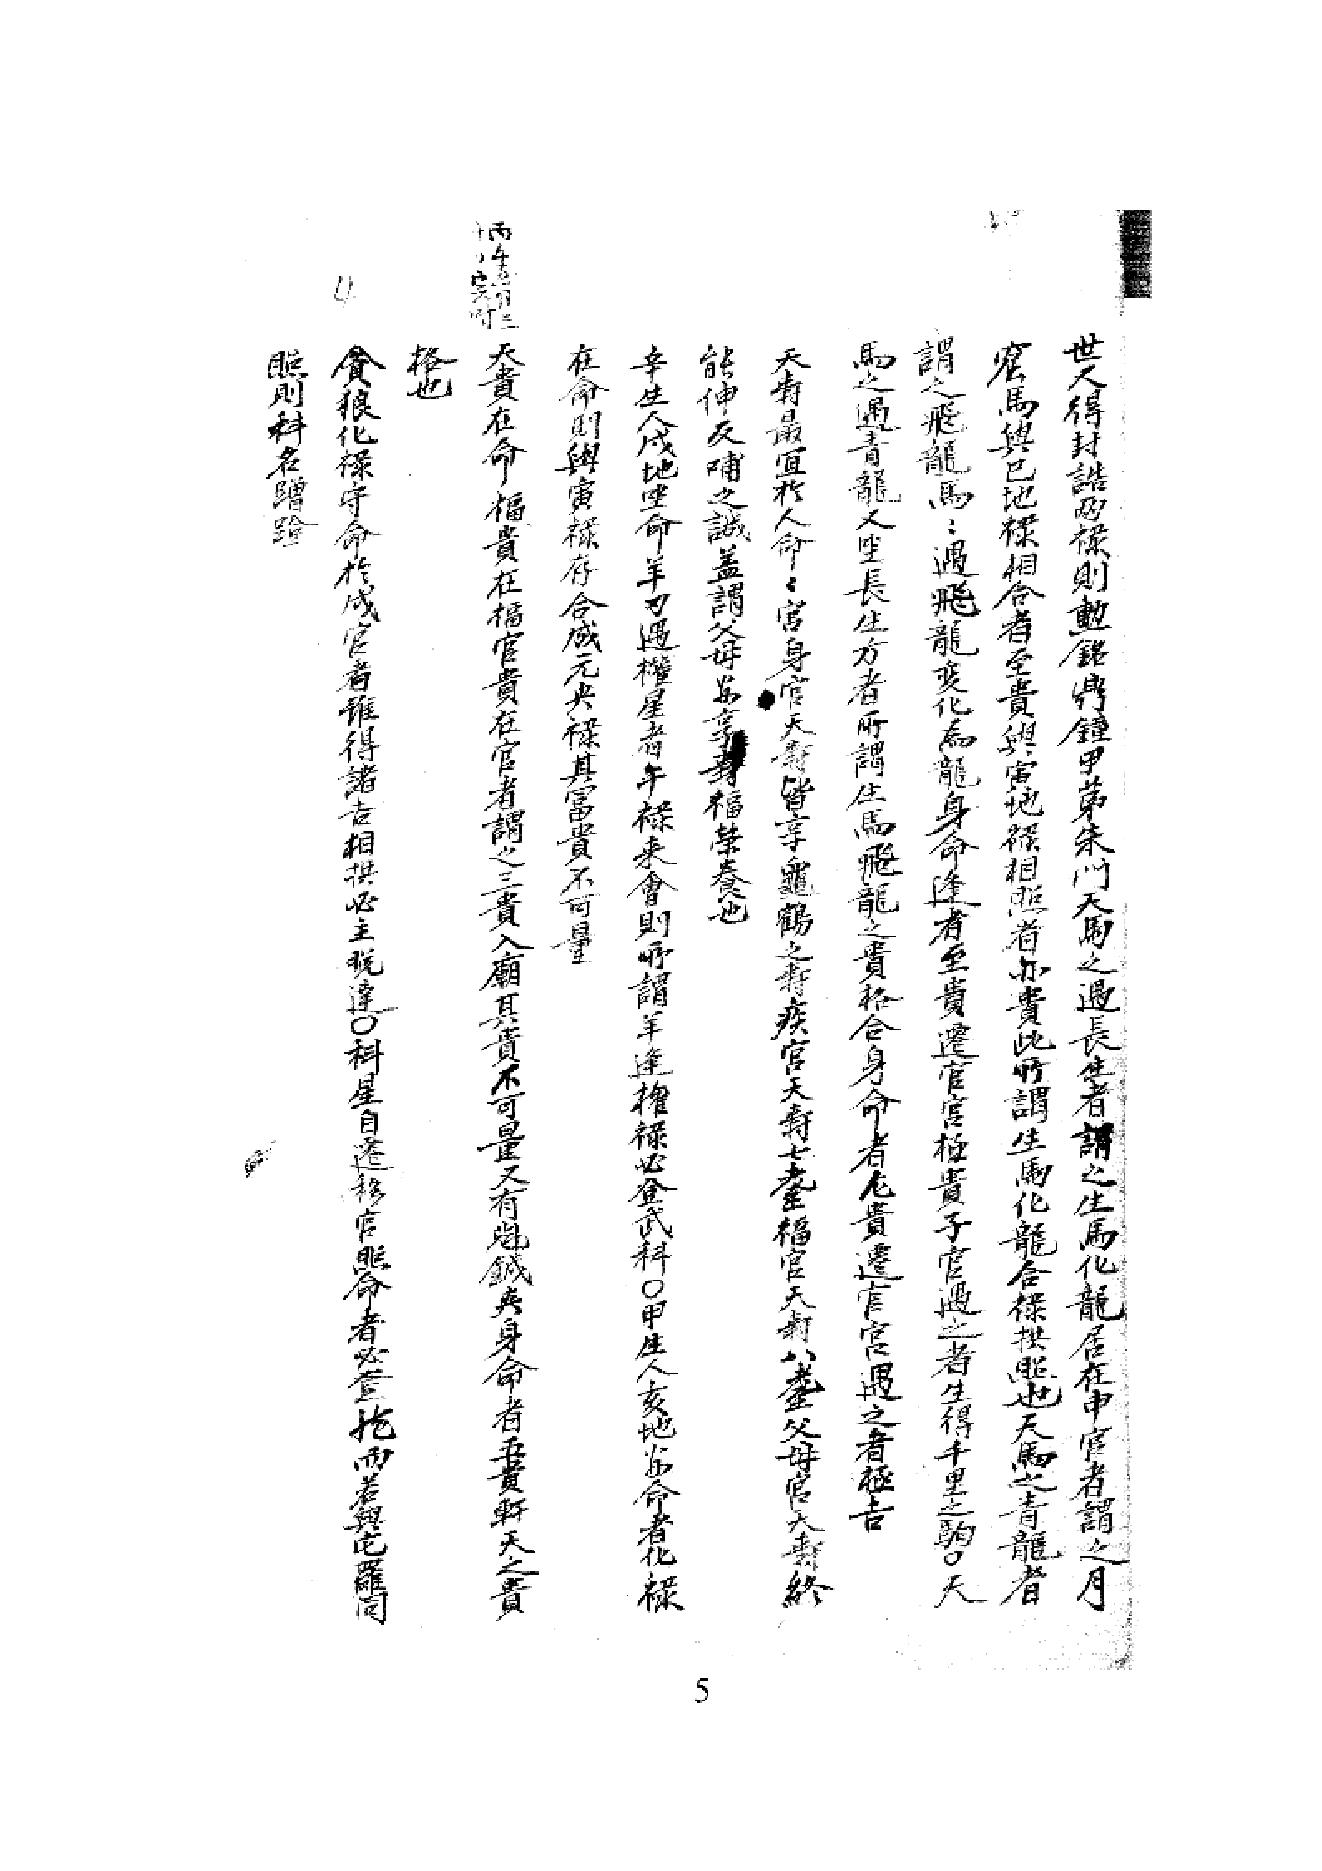 世人得封誥兩祿則勳銘鼎鐘甲苐朱門天馬之遇長生者謂之生馬化龍居在申宮者謂之月
窟馬與巳地祿相合者至貴與寅地祿相照者亦貴此所謂生馬化龍合祿拱照也天馬之青龍者
謂之飛龍馬〻遇飛龍変化為龍身命逢者至貴遷官宮極貴子官遇之者生得千里之駒〇天
馬之遇青龍又坐長生方者所謂生馬飛龍之貴格合身命者尤貴遷官宮遇之者極吉
天壽最宜於人命〻宮身官天壽皆享龜鶴之壽疾宮天壽七耋福官天壽八耋父母官天壽終
能伸反哺之誠盖謂父母安享壽福榮養也
辛生人戌地坐命羊刃遇權星者午祿来會則所謂羊逢權祿必登武科〇甲生人亥地安命者化祿
在命則與寅祿存合成元央祿其富貴不可量
天貴在命福貴在福官貴在官者謂之三貴入廟其貴不可量又有魁鉞夾身命者五貴軒天之貴
格也
貪狼化祿守命於戌官者雖得諸吉相拱必主晩達〇科星自遷移官照命者必登抡而若與屯羅同
照則科名蹭蹬
丙午
4
5